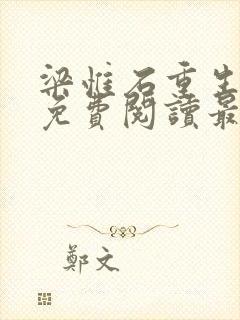 梁惟石重生
免費閱讀最
鄭文